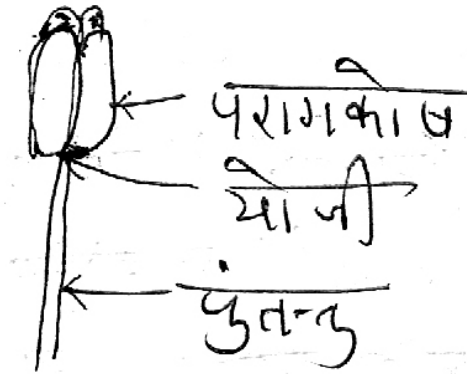 परागकोष
योजी
पुंतन्तु